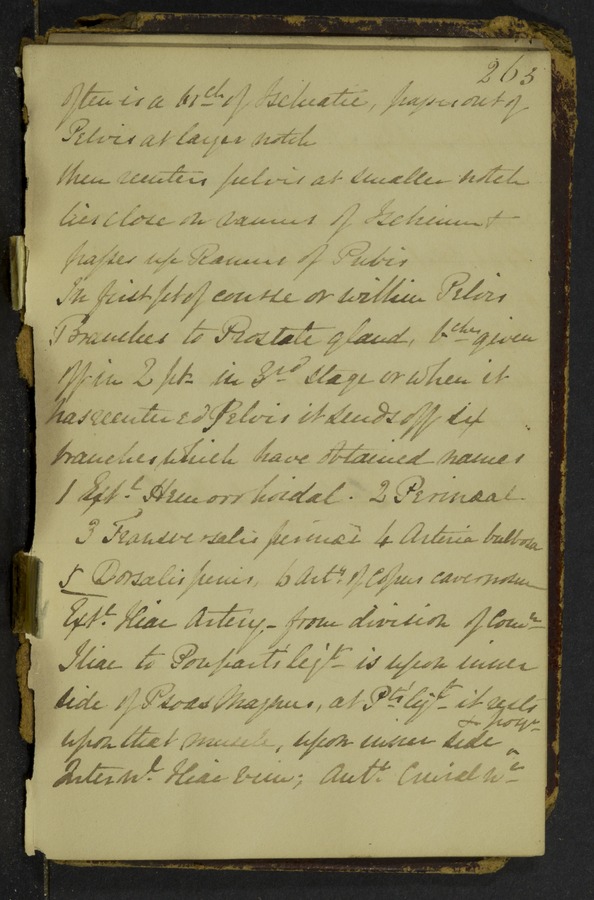 265
often is a brch of Ischiatic, passes out of
Pelvis at larger notch
then reenters pelvis at smaller notch
lies close on ramus of Ischium &
passes up Ramus of Pubis
In first pt of course or within Pelvis
Branches to Prostate gland, bches given
off in 2 pt in 3rd stage or when it
has reentered Pelvis it sends off six
branches which have obtained names
1 Extl Hemorrhoidal. 2 Perinaal
3 Transversalis perinæi 4 Arteria bulbosa
5 Dorsalis penis, 6 Arty of Copus cavernosum
Extl Iliac Artery - from division of Comn
Iliac to Pouparts ligt is upon inner
side of Psoas Magnus, at Pts ligt it rests
upon that muscle, upon inner side
Internl Iliac vein; Antr Crural